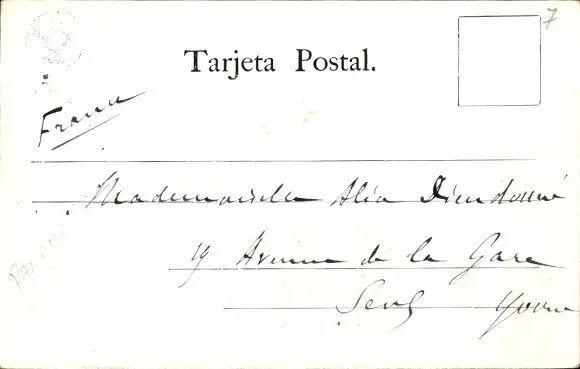 7
Tarjeta Postal.
France
Mademoiselle Alia Dieudonné
19 Avenue de la Gare
Sens Yonne